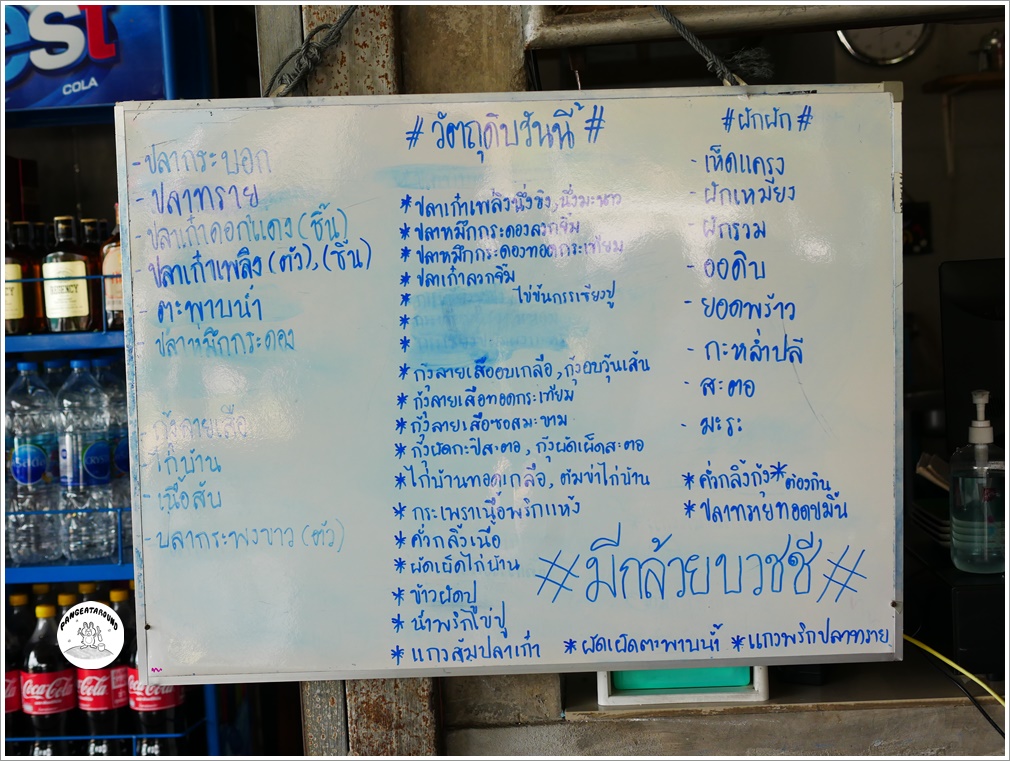 est
COLA
#วัตถุดิบวันนี้#
- ปลากระบอก
- ปลาทราย
- ปลาเก๋าดอกแดง (ชิ้น)
- ปลาเก๋าเพลิง (ตัว), (ชิ้น)
- ตะพาบน้ำ
- ปลาหมึกกระดอง
- กุ้งลายเสือ
- ไก่บ้าน
- เนื้อสับ
- ปลากะพงขาว (ตัว)
* ปลาเก๋าเพลิงนึ่งขิง, นึ่งมะนาว
* ปลาหมึกกระดองลวกจิ้ม
* ปลาหมึกกระดองทอดกระเทียม
* ปลาเก๋าลวกจิ้ม
* ไข่ข้นกรรเชียงปู
*
*
* กุ้งลายเสืออบเกลือ, กุ้งอบวุ้นเส้น
* กุ้งลายเสือทอดกระเทียม
* กุ้งลายเสือซอสมะขาม
* กุ้งผัดกะปิสะตอ, กุ้งผัดเผ็ดสะตอ
* ไก่บ้านทอดเกลือ, ต้มข่าไก่บ้าน
* กระเพราเนื้อพริกแห้ง
* คั่วกลิ้งเนื้อ
* ผัดเผ็ดไก่บ้าน
* ข้าวผัดปู
* น้ำพริกไข่ปู
* แกงส้มปลาเก๋า * ผัดเผ็ดตะพาบน้ำ * แกงพริกปลาทราย
#ผักผัก#
- เห็ดแครง
- ผักเหมียง
- ผักรวม
- ออดิบ
- ยอดพร้าว
- กะหล่ำปลี
- สะตอ
- มะระ
* คั่วกลิ้งกุ้ง * ต้องกิน
* ปลาทรายทอดขมิ้น
#มีกล้วยบวชชี#
PANGEATAROUND
Coca-Cola
Coca-Cola
Coca-Cola